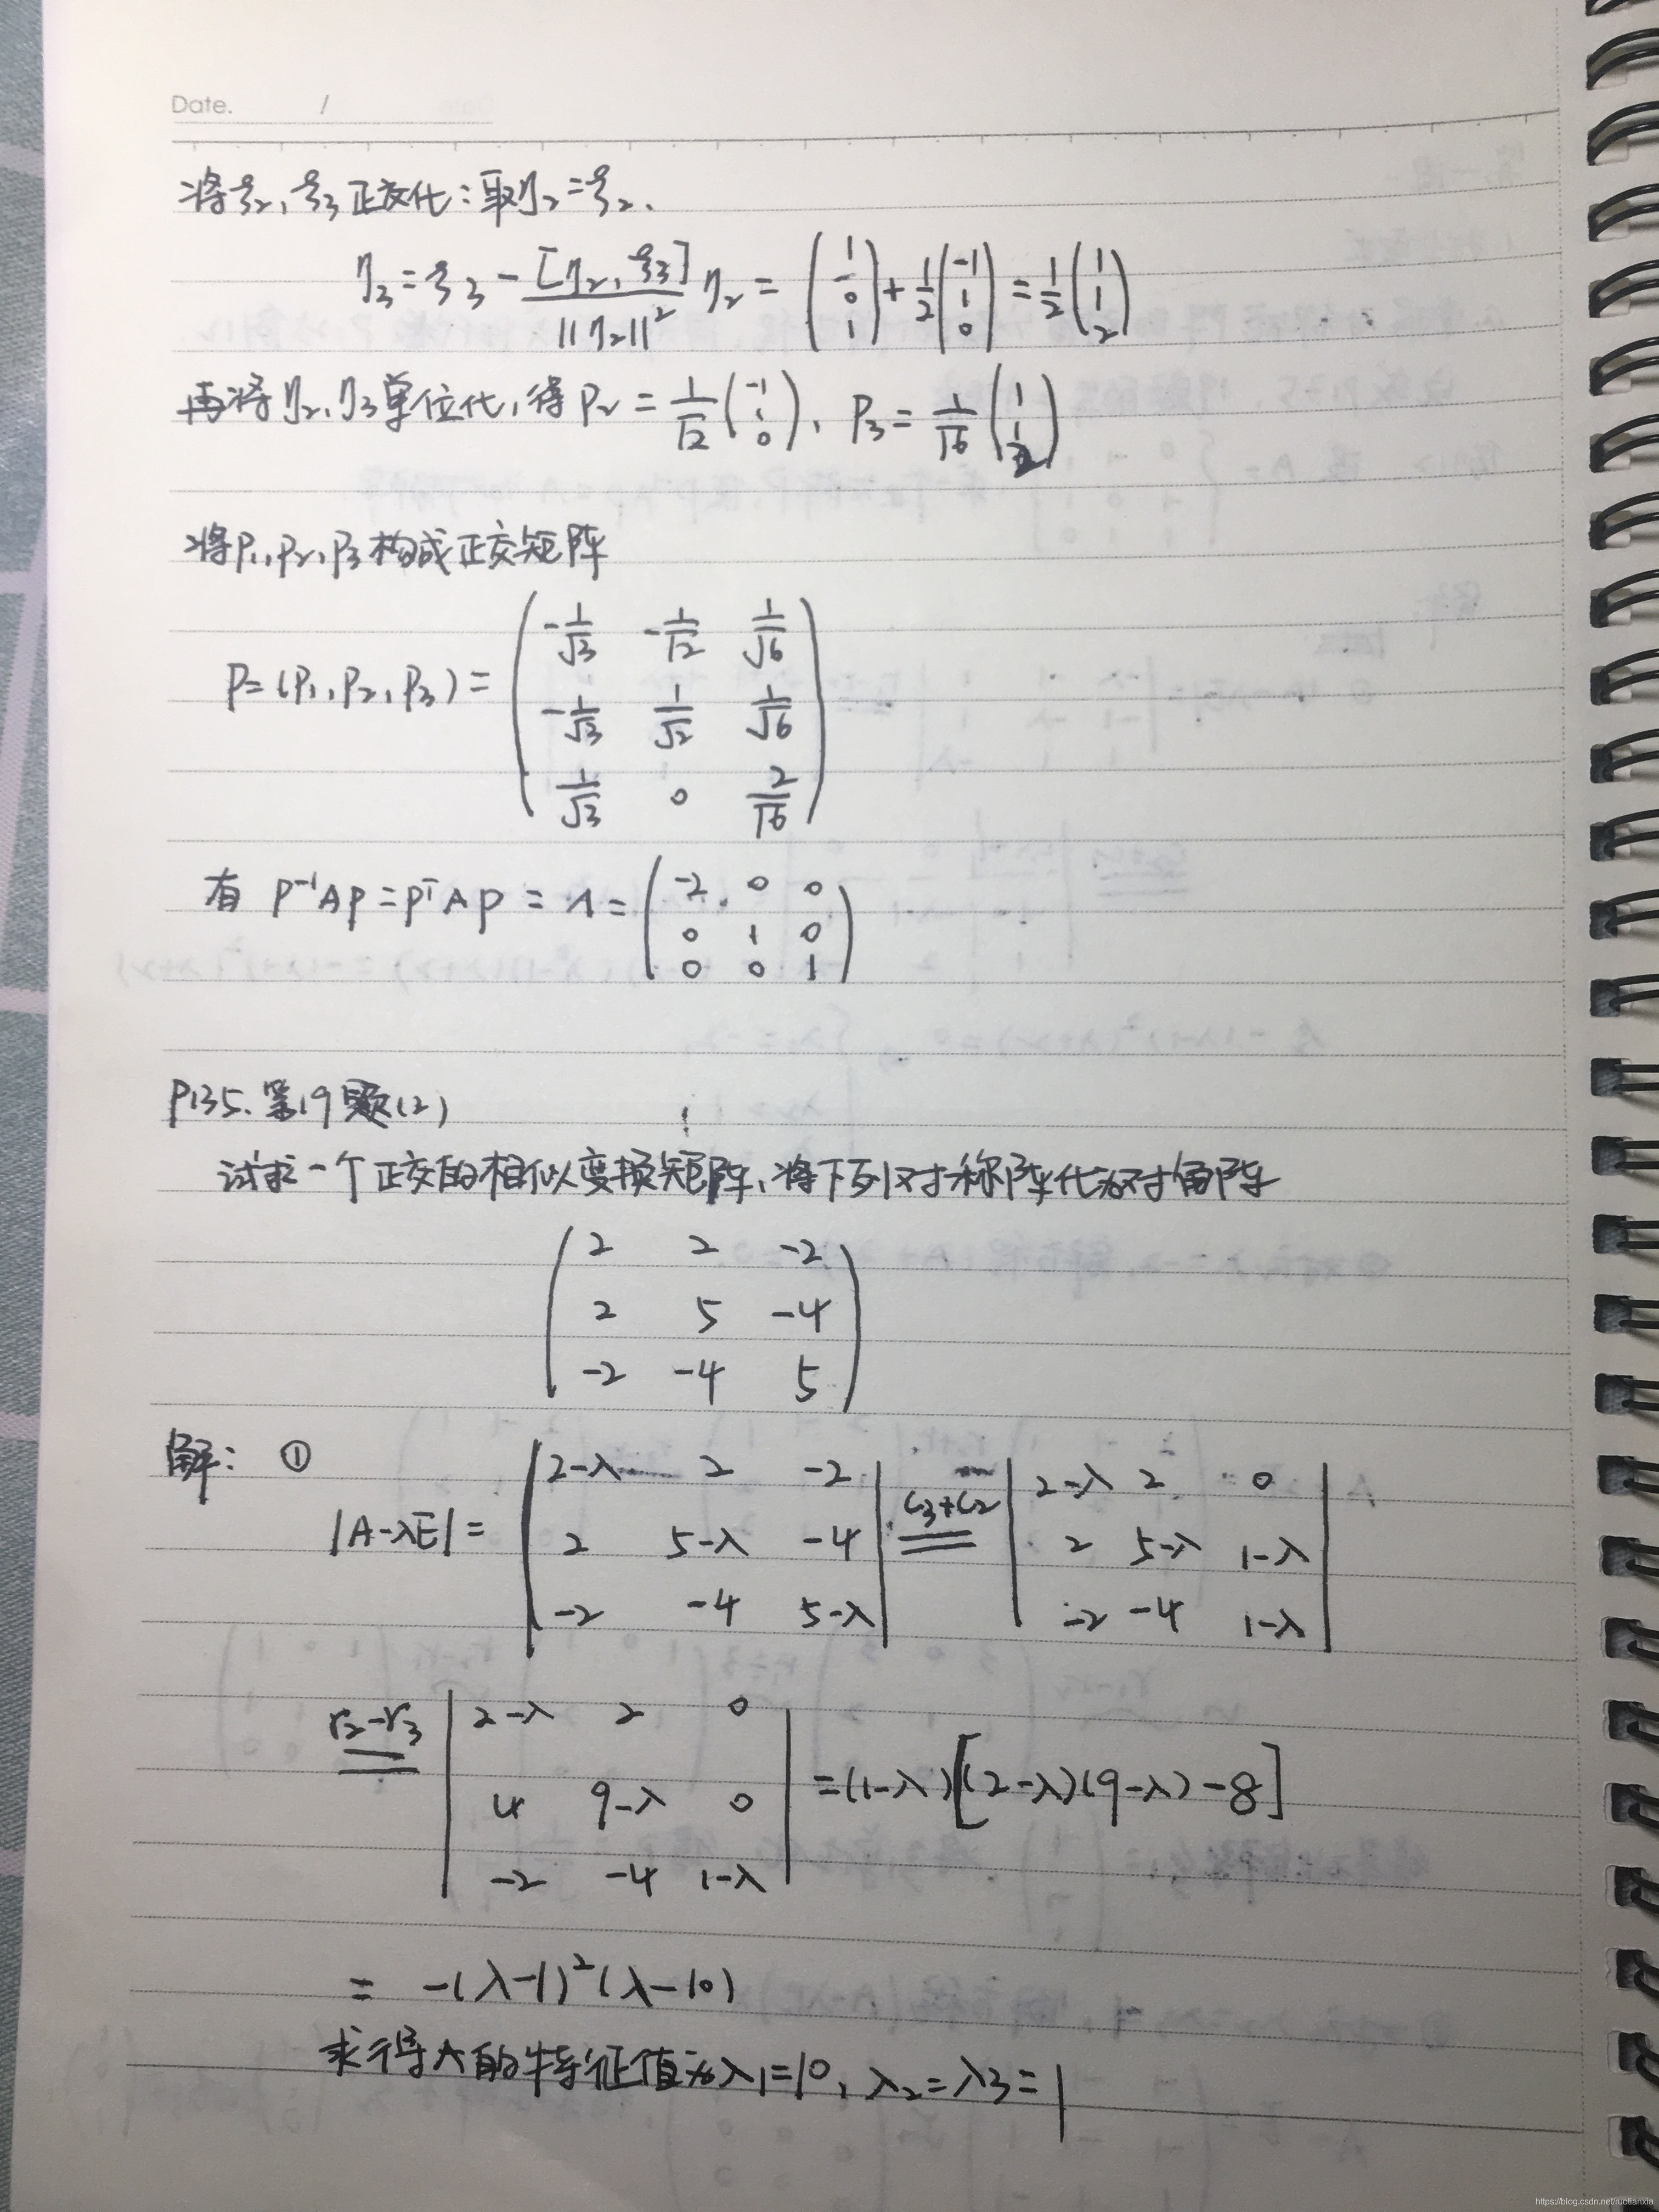 Date. /
将ξ₂, ξ₃正交化:取η₂=ξ₂.
η₃=ξ₃-[η₂,ξ₃]/||η₂||² η₂ = (1 0 1)+1/2(-1 1 0)=1/2(1 1 2)
再将η₂,η₃单位化,得 P₂=1/√2(-1 1 0), P₃=1/√6(1 1 2)
将P₁,P₂,P₃构成正交矩阵
P=(P₁,P₂,P₃)=
-1/√3 -1/√2 1/√6
-1/√3 1/√2 1/√6
1/√3 0 2/√6
有 P⁻¹AP=PᵀAP=Λ=
-2 0 0
0 1 0
0 0 1
P135.第19题(2)
试求一个正交的相似变换矩阵,将下列对称阵化为对角阵
2 2 -2
2 5 -4
-2 -4 5
解: ①
|A-λE|=
2-λ 2 -2
2 5-λ -4
-2 -4 5-λ
c₃+c₂
2-λ 2 0
2 5-λ 1-λ
-2 -4 1-λ
r₂-r₃
2-λ 2 0
4 9-λ 0
-2 -4 1-λ
=(1-λ)[(2-λ)(9-λ)-8]
= -(λ-1)²(λ-10)
求得A的特征值为λ₁=10, λ₂=λ₃=1
https://blog.csdn.net/ruotianxia